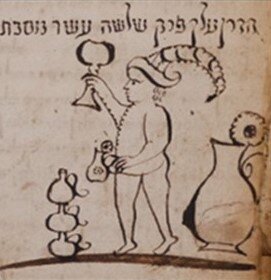 הדרן עלך פרק שלשה עשר מסכת